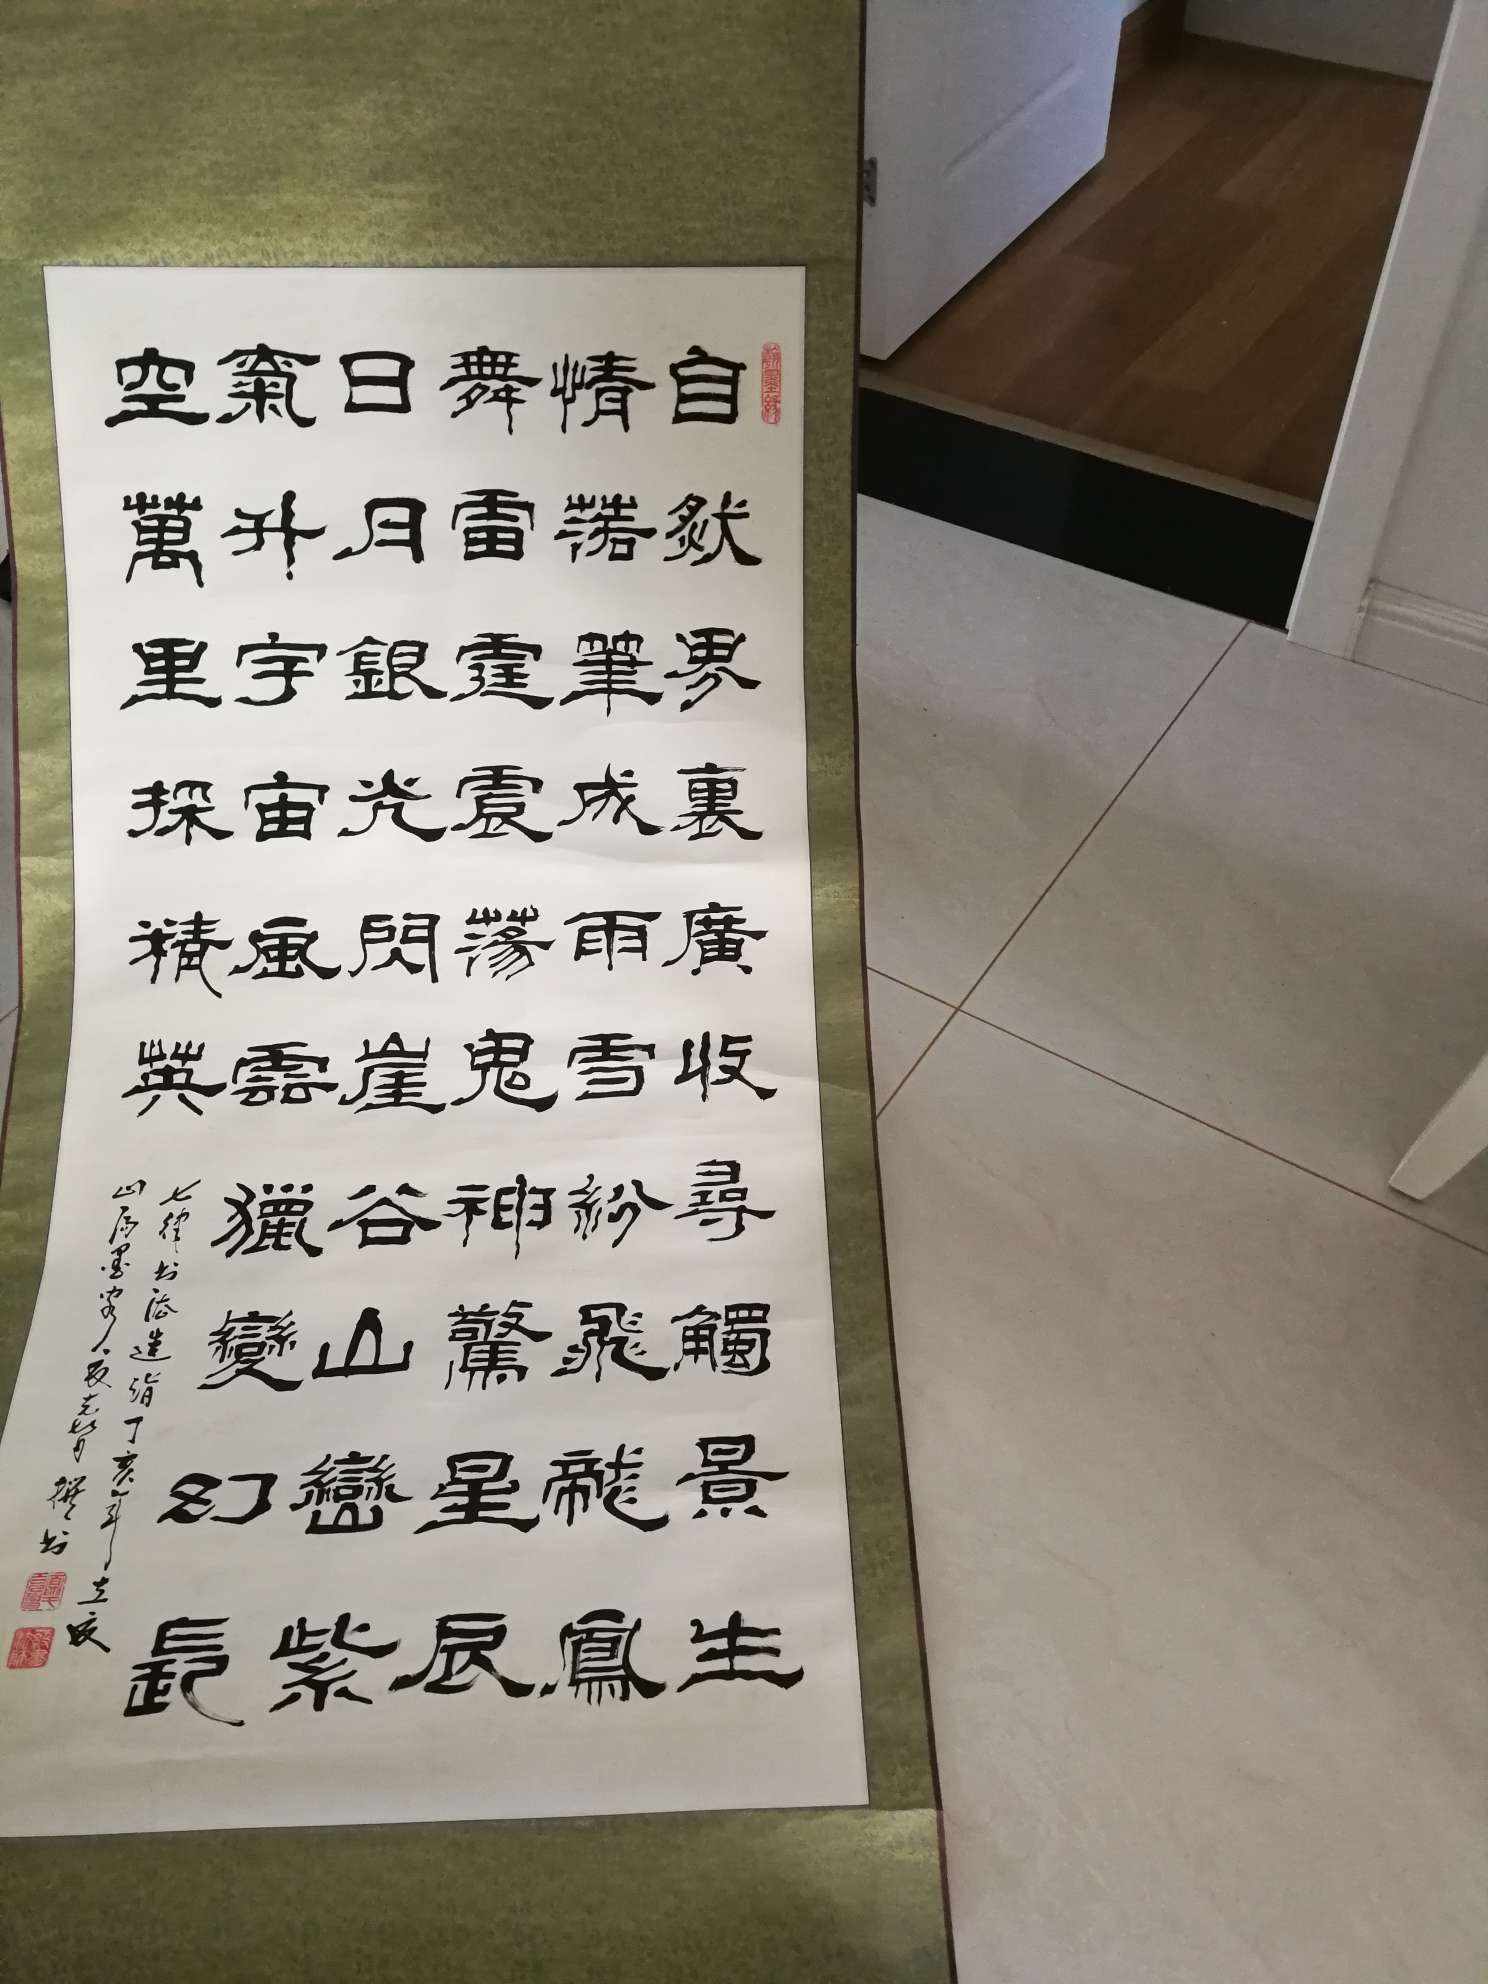 自然界裏廣收尋觸景生
情落筆成雨雪紛飛龍鳳
舞雷霆震蕩鬼神驚星辰
日月銀光閃崖谷山巒紫
氣升宇宙風雲獵變幻長
空萬里探精英
七律书法造诣丁亥年立夏
撰书